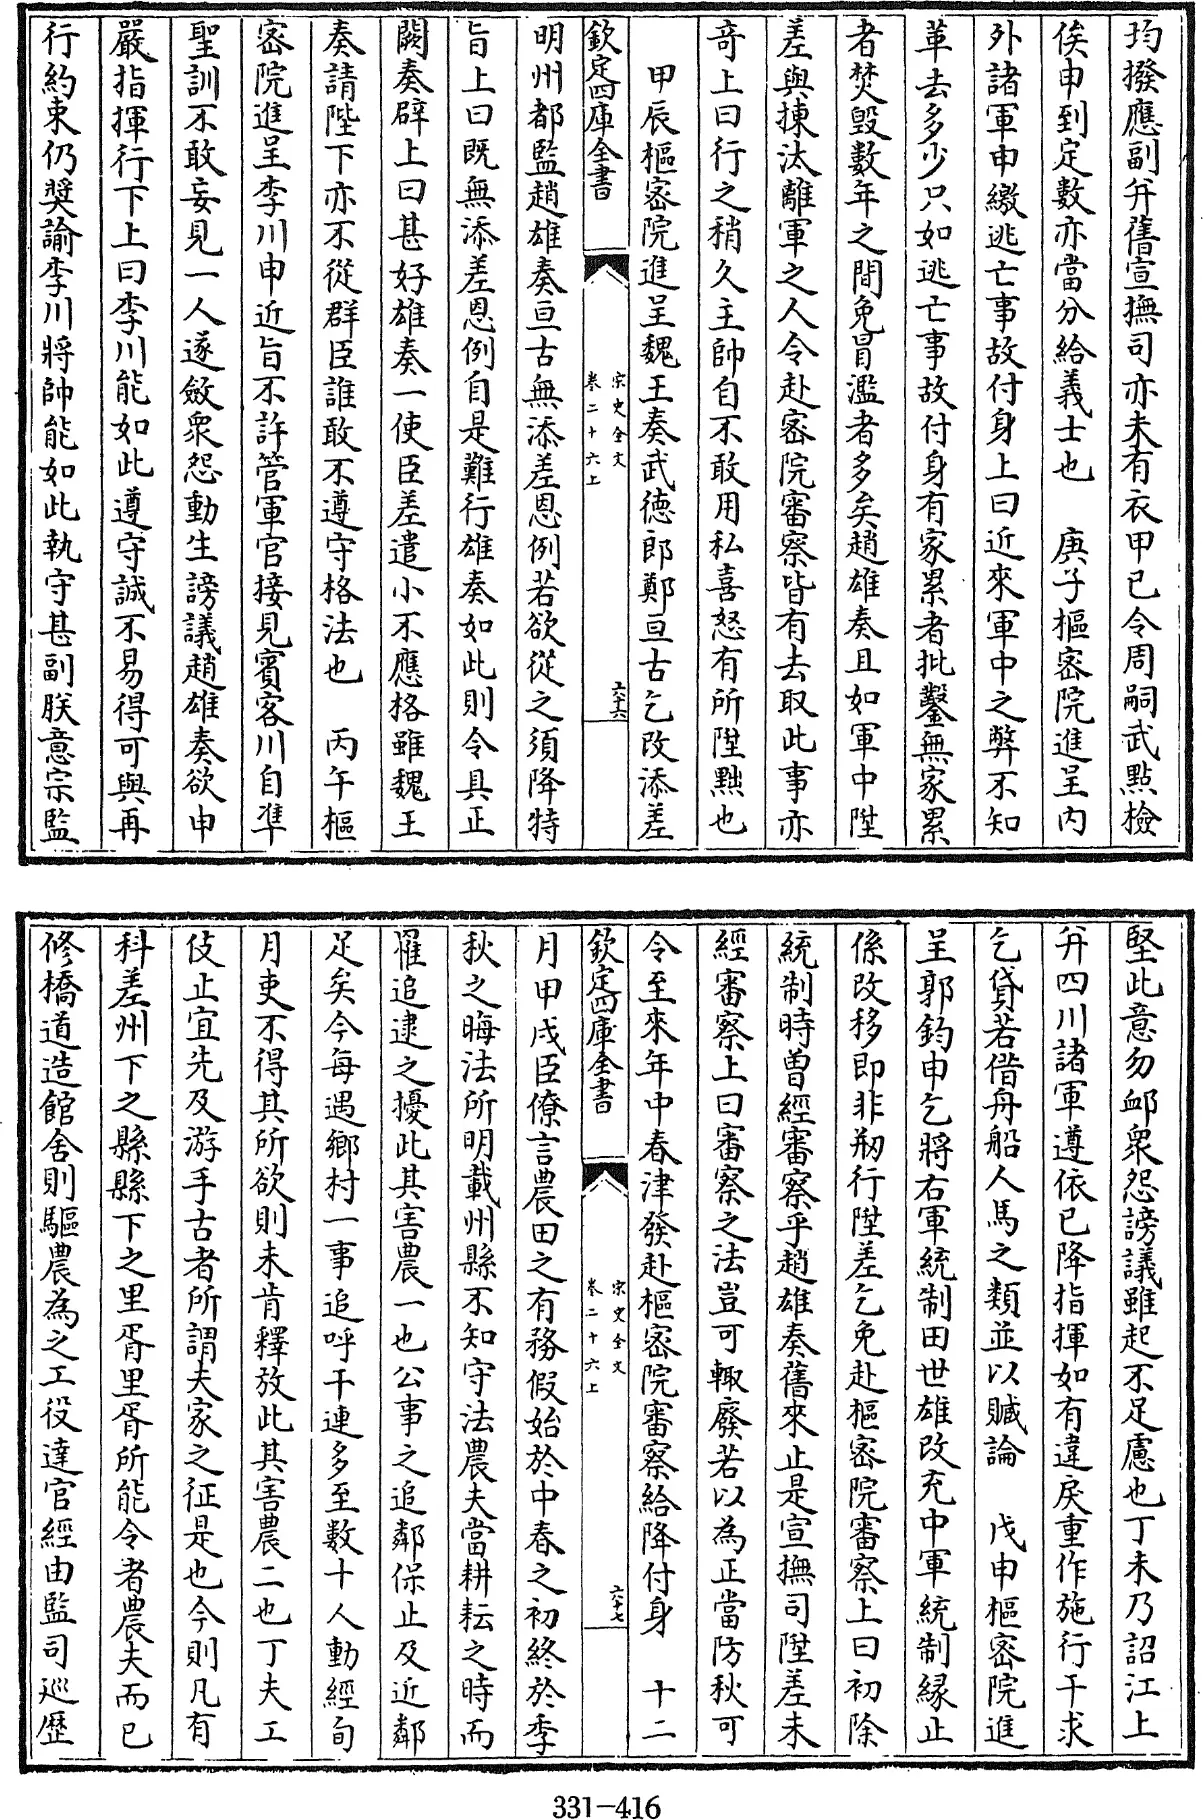 均撥應副弁舊宣撫司亦未有衣甲已令周嗣武點檢
俟申到定數亦當分給義士也　庚子樞密院進呈内
外諸軍申繳逃亡事故付身上曰近來軍中之弊不知
革去多少只如逃亡事故付身有家累者批鑿無家累
者焚毁數年之間免冒濫者多矣趙雄奏且如軍中陞
差與揀汰離軍之人令赴密院審察皆有去取此事亦
竒上曰行之稍久主帥自不敢用私喜怒有所陞黜也
甲辰樞密院進呈魏王奏武德郎鄭亘古乞改添差
欽定四庫全書
宋史全文
卷二十六上
六十六
明州都監趙雄奏亘古無添差恩例若欲從之須降特
旨上曰既無添差恩例自是難行雄奏如此則令具正
闕奏辟上曰甚好雄奏一使臣差遣小不應格雖魏王
奏請陛下亦不從群臣誰敢不遵守格法也　丙午樞
密院進呈李川申近旨不許管軍官接見賓客川自凖
聖訓不敢妄見一人遂斂衆怨動生謗議趙雄奏欲申
嚴指揮行下上曰李川能如此遵守誠不易得可與再
行約束仍奬諭李川將帥能如此執守甚副朕意宗監
堅此意勿䘏衆怨謗議雖起不足慮也丁未乃詔江上
弁四川諸軍遵依已降指揮如有違戾重作施行干求
乞貸若借舟船人馬之類並以贓論　戊申樞密院進
呈郭鈞申乞將右軍統制田世雄改充中軍統制縁止
係改移即非剏行陞差乞免赴樞密院審察上曰初除
統制時曾經審察乎趙雄奏舊來止是宣撫司陞差未
經審察上曰審察之法豈可輒廢若以為正當防秋可
令至來年中春津發赴樞密院審察給降付身　十二
欽定四庫全書
宋史全文
卷二十六上
六十七
月甲戌臣僚言農田之有務假始於中春之初終於季
秋之晦法所明載州縣不知守法農夫當耕耘之時而
罹追逮之擾此其害農一也公事之追鄰保止及近鄰
足矣今每遇鄉村一事追呼干連多至數十人動經旬
月吏不得其所欲則未肯釋放此其害農二也丁夫工
伎止宜先及游手古者所謂夫家之征是也今則凡有
科差州下之縣縣下之里胥里胥所能令者農夫而已
修橋道造館舍則驅農為之工役達官經由監司巡歴
331—416